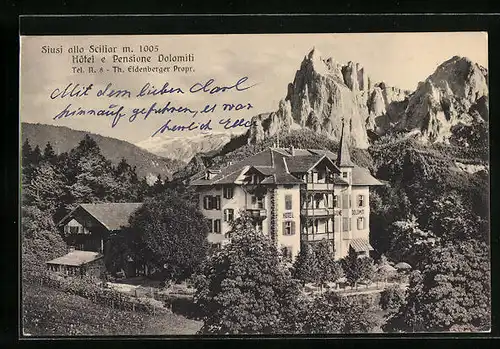 Siusi allo Sciliar m. 1005
Hôtel e Pensione Dolomiti
Tel. N. 8 - Th. Eldenberger Propr.
Mit dem lieben Carl
hinnauf gefahren, es war
herrlich
HOTEL DOLOMITI